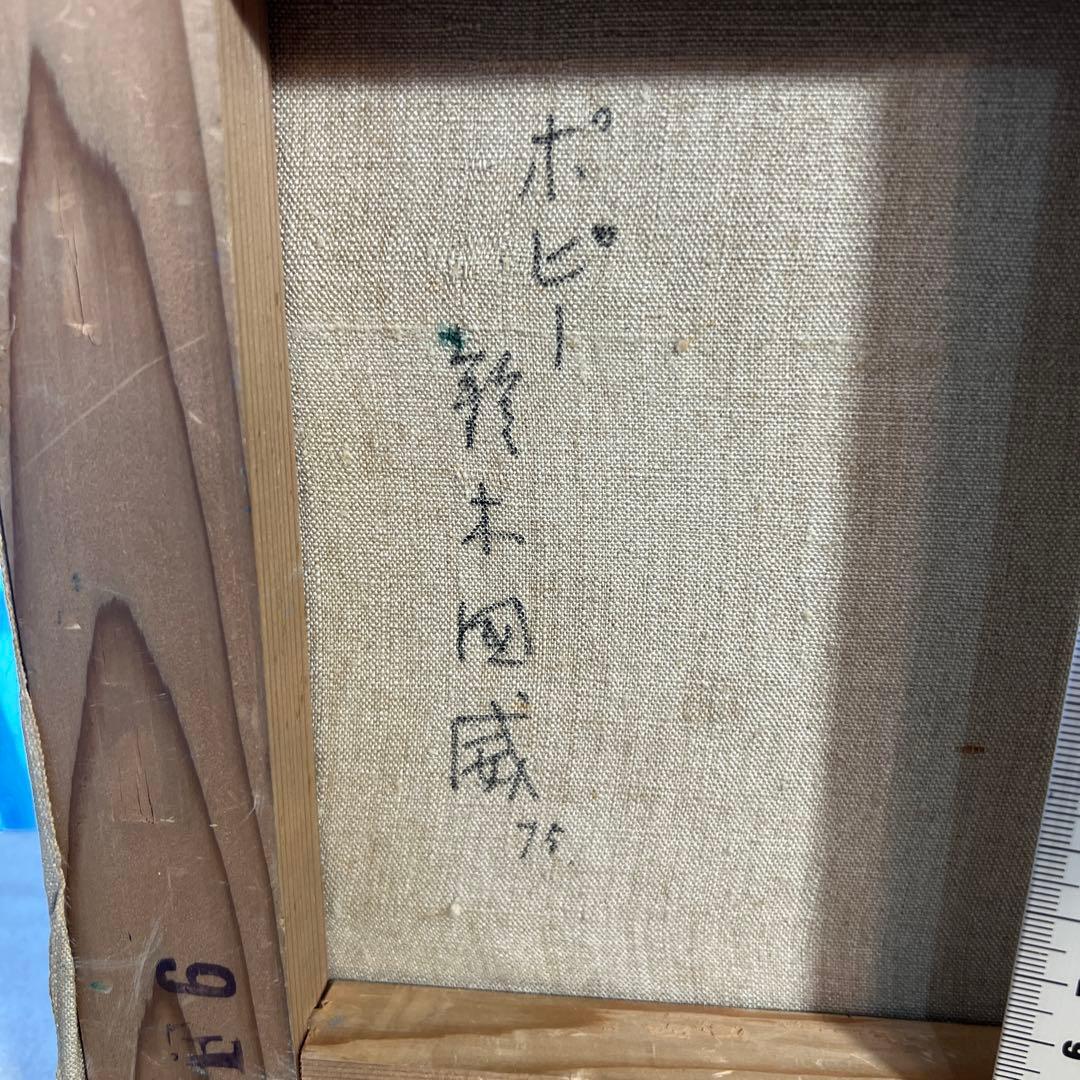 ポピー
鈴木国威
75
F6